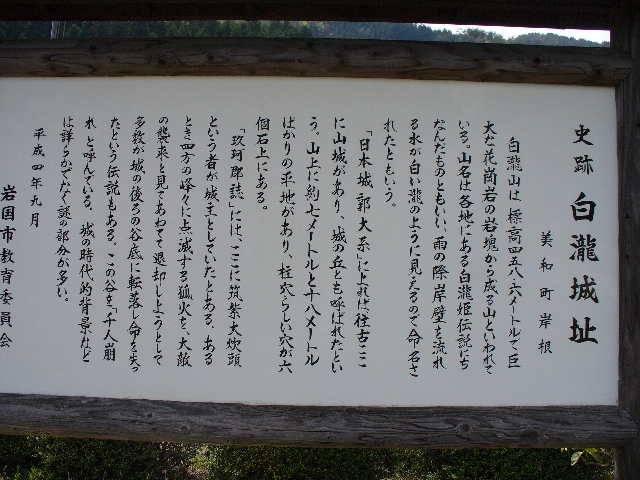 史跡 白瀧城址
美和町岸根
白瀧山は、標高四五八・六メートルで巨
大な花崗岩の岩塊から成る山といわれて
いる。山名は各地にある白瀧姫伝説にち
なんだものともいい、雨の際岸壁を流れ
る水が白い瀧のように見えるので命名さ
れたともいう。
「日本城郭大系」によれば往古ここ
に山城があり、城の丘とも呼ばれたとい
う。山上に約七メートルと十八メートル
ばかりの平地があり、柱穴らしい穴が六
個石上にある。
「玖珂郡誌」には、ここに筑紫大炊頭
という者が城主としていたとある。ある
とき四方の峰々に点滅する狐火を、大敵
の襲来と見てあわてて退却しようとして
多数が城の後ろの谷底に転落し命を失っ
たという伝説もある。この谷を「千人崩
れ」と呼んでいる。城の時代的背景など
は詳らかでなく謎の部分が多い。
平成四年九月
岩国市教育委員会